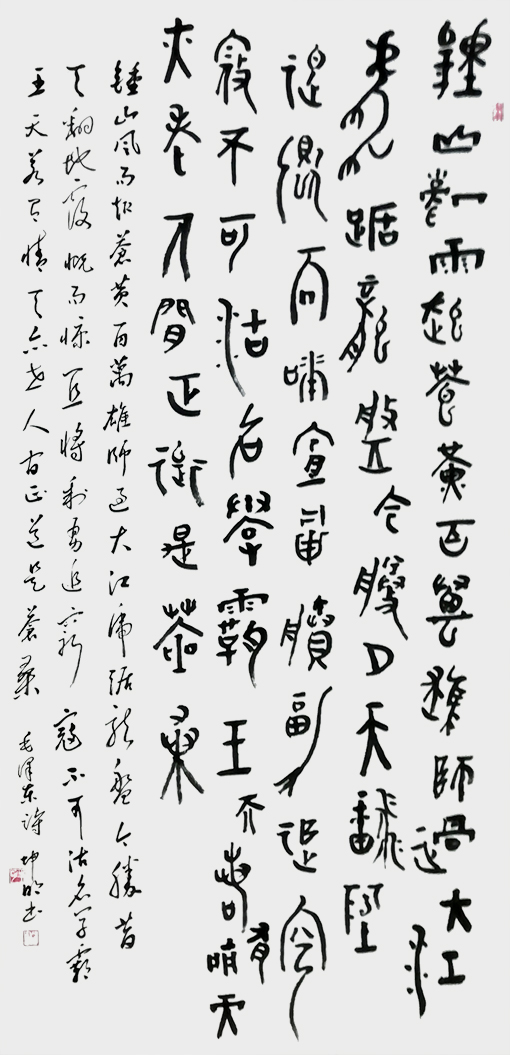 鍾山風雨起蒼黃百萬雄師過大江
虎踞龍盤今勝昔天翻地
覆慨而慷宜將剩勇追窮
寇不可沽名學霸王天若有情天
亦老人間正道是蒼桑
鍾山風雨起蒼黃百萬雄師過大江虎踞龍盤今勝昔
天翻地覆慨而慷宜將剩勇追窮寇不可沽名學霸
王天若有情天亦老人間正道是蒼桑 毛澤東詩 坤明書